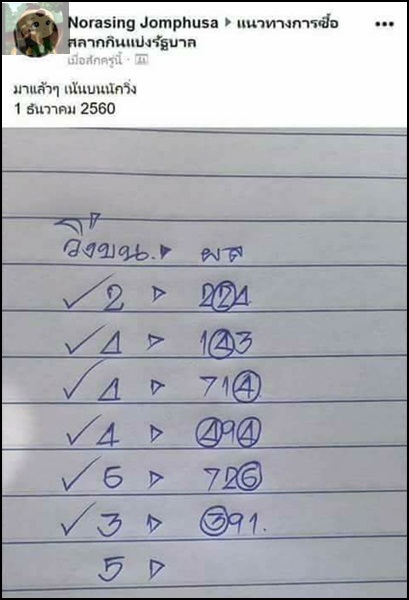 Norasing Jomphusa ▸ แนวทางการซื้อ
สลากกินแบ่งรัฐบาล
เมื่อสักครู่นี้ ·
มาแล้วๆ เน้นบนนักวิ่ง
1 ธันวาคม 2560
วิ่งบน. ผล
✓ 2 ▷ 224
✓ 4 ▷ 143
✓ 4 ▷ 714
✓ 4 ▷ 494
✓ 6 ▷ 726
✓ 3 ▷ 391.
5 ▷